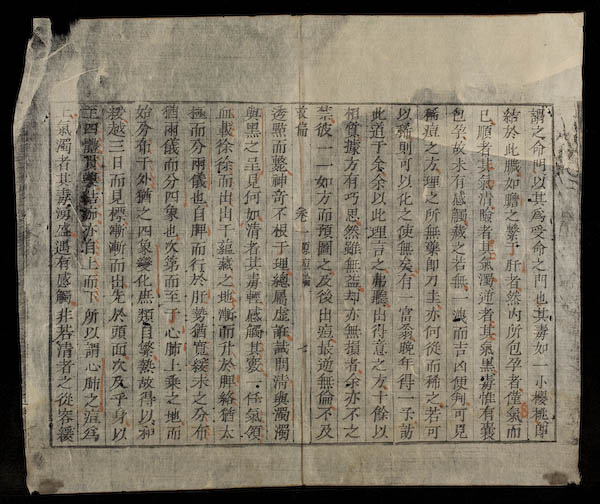 謂之命門以其為受命之門也其毒如一小櫻桃即
結於此臟如膽之繫于肝者然內所包孕者僅氣而
已順者其氣清險者其氣濁逆者其氣黑毒惟有囊
包孕故未有感觸藏之若無一洩而吉凶便判可見
稀痘之方理之所無藥即刀圭亦何從而稀之若可
以稀則可以化之使無矣有一富翁晚年得一子訪
此道于余余以此理言之弗聽出得意之方十餘以
相質據方有巧思然雖無益却亦無損者余亦不之
禁彼一一如方而預圖之及後出痘最逆無倫不及
救偏 卷一 原痘論 七
透點而斃神奇不根于理總屬虛誑試問清與濁濁
與黑之呈見何如清者其毒輕感觸其竅一任氣領
血載徐徐而出由于蘊藏之地漸而升於脾絡猶太
極而分兩儀也自脾而行於肝勢猶寬緩未之分布
猶兩儀而分四象也次第而至于心肺上乘之地而
始分布于外猶之四象變化庶類自繁熱故得以和
緩越三日而見標漸漸而出先於頭面次及乎身以
至四肢貫漿結痂亦自上而下所以謂心肺之痘為
上氣濁者其毒洶盛遇有感觸非若清者之從容緩